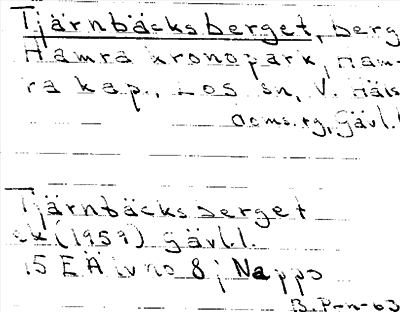 Tjärnbäcksberget, berg
Hamra kronopark, Ham-
ra kap., Los sn, V. Häls.
doms.rg, Gävl.l
Tjärnbäcksberget
ek (1959) Gävl.l.
15 E Älvho 8j Nappo
B.P-n-63